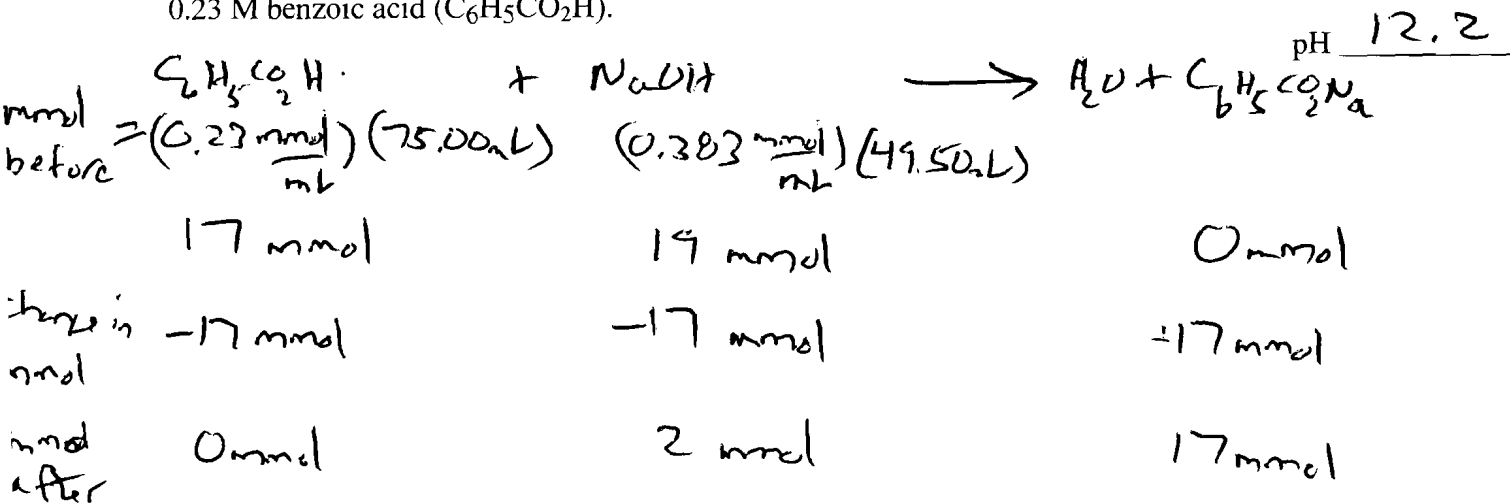 0.23 M benzoic acid (C6H5CO2H).
pH 12.2
C6H5CO2H + NaOH → H2O + C6H5CO2Na
mmol before = (0.23 mmol/mL)(75.00mL) (0.383 mmol/mL)(49.50mL)
17 mmol 19 mmol 0 mmol
change in mmol -17 mmol -17 mmol +17 mmol
mmol after 0 mmol 2 mmol 17 mmol